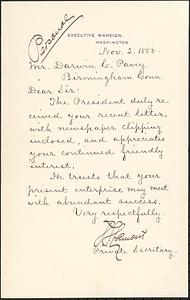 Personal
EXECUTIVE MANSION,
WASHINGTON.
Nov. 2. 1888.
Mr. Darwin C. Pavey
Birmingham Conn.
Dear Sir:
The President duly re-
ceived your recent letter,
with newspaper clipping
inclosed, and appreciates
your continued friendly
interest.
He trusts that your
present enterprise may meet
with abundant success.
Very respectfully,
Lamont
Private Secretary.